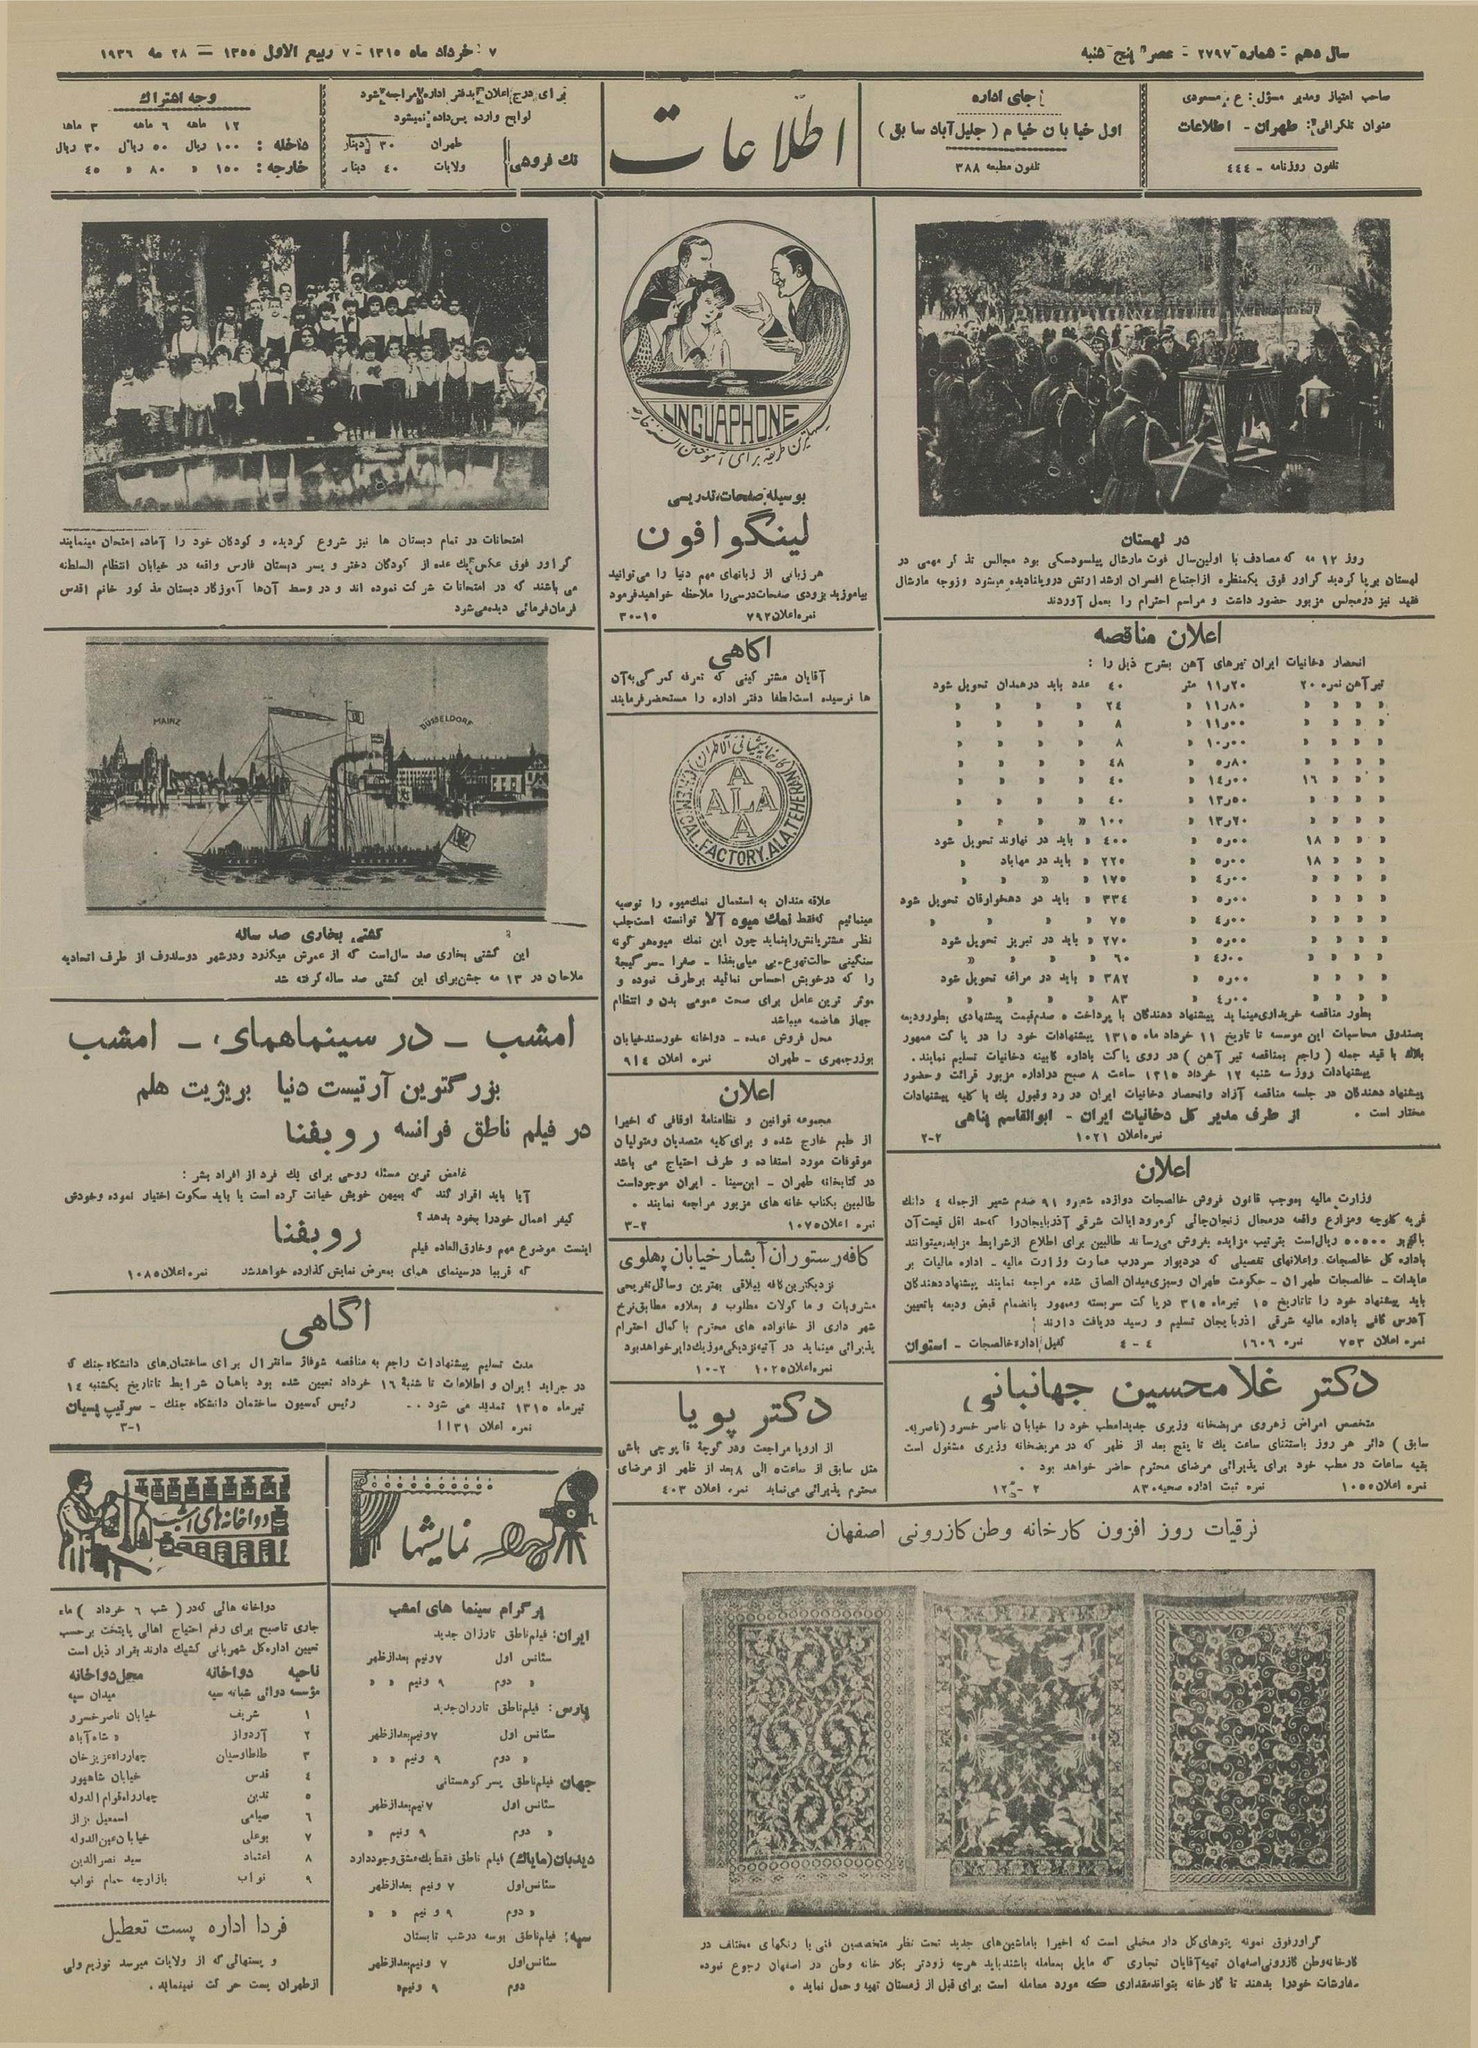 سال دهم - شماره ۲۷۹۷ - عصر پنج شنبه
۷ خرداد ماه ۱۳۱۵ - ۷ ربیع الاول ۱۳۵۵ = ۲۸ مه ۱۹۳۶
صاحب امتیاز ومدیر مسؤل : ع . مسعودی
عنوان تلگرافی : طهران - اطلاعات
تلفون روزنامه - ۴۴۴
جای اداره
اول خیابان خیام ( جلیل آباد سابق )
تلفون مطبعه ۳۸۸
اطلاعات
برای درج اعلان بدفتر اداره مراجعه شود
لوایح وارده پس داده نمیشود
تك فروشی
طهران ۳۰ دینار
ولایات ۴۰ دینار
وجه اشتراك
۱۲ ماهه ۶ ماهه ۳ ماهه
داخله : ۱۰۰ ریال ۵۰ ریال ۳۰ ریال
خارجه : ۱۵۰ » ۸۰ » ۴۵
در لهستان
روز ۱۲ مه که مصادف با اولین سال فوت مارشال پیلسودسکی بود مجالس تذکر مهمی در
لهستان برپا گردید گراور فوق یکمنظره از اجتماع افسران ارشد ارتش در ویلنا دیده میشود و زوجه مارشال
فقید نیز در مجلس مزبور حضور داشت و مراسم احترام را بعمل آوردند
اعلان مناقصه
انحصار دخانیات ایران تیرهای آهن بشرح ذیل را :
تیر آهن نمره ۲۰ ۱۱٫۲۰ متر ۴۰ عدد باید در همدان تحویل شود
» » » » ۱۱٫۸۰ » ۲۴ » » » »
» » » » ۱۱٫۰۰ » ۸ » » » »
» » » » ۱۰٫۰۰ » ۸ » » » »
» » » » ۵٫۸۰ » ۴۸ » » » »
» » » ۱۶ ۱۴٫۰۰ » ۴۰ » » » »
» » » » ۱۳٫۵۰ » ۴۰ » » » »
» » » » ۱۳٫۲۰ » ۱۰۰ » » » »
» » » ۱۸ ۵٫۰۰ » ۴۰۰ » باید در نهاوند تحویل شود
» » » ۱۸ ۵٫۰۰ » ۲۲۵ » باید در مهاباد »
» » » » ۴٫۰۰ » ۱۷۵ » » » »
» » » » ۵٫۰۰ » ۳۳۴ » باید در دهخوارقان تحویل شود
» » » » ۴٫۰۰ » ۷۵ » » » »
» » » » ۵٫۰۰ » ۲۷۰ » باید در تبریز تحویل شود
» » » » ۴٫۰۰ » ۶۰ » » »
» » » » ۵٫۰۰ » ۳۸۲ » باید در مراغه تحویل شود
» » » » ۴٫۰۰ » ۸۳ » » » »
بطور مناقصه خریداری مینماید پیشنهاد دهندگان با پرداخت ۵ صدم قیمت پیشنهادی بطور ودیعه
بصندوق محاسبات این موسسه تا تاریخ ۱۱ خرداد ماه ۱۳۱۵ پیشنهادات خود را در پاکت ممهور
بلاك با قید جمله ( راجع بمناقصه تیر آهن ) در روی پاکت باداره کابینه دخانیات تسلیم نمایند .
پیشنهادات روز سه شنبه ۱۲ خرداد ۱۳۱۵ ساعت ۸ صبح در اداره مزبور قرائت و حضور
پیشنهاد دهندگان در جلسه مناقصه آزاد وانحصار دخانیات ایران در رد وقبول یك یا کلیه پیشنهادات
مختار است . از طرف مدیر کل دخانیات ایران - ابوالقاسم پناهی
نمره اعلان ۱۰۲۱ ۲-۲
اعلان
وزارت مالیه بموجب قانون فروش خالصجات دوازده شعیر و ۹۱ صدم شعیر از جمله ۴ دانك
قریه کلوچه ومزارع واقعه در محال زنجان جائی کرمرود ایالت شرقی آذربایجان را که حد اقل قیمت آن
۵۰۰۰۰ ریال است بترتیب مزایده بفروش می رساند طالبین برای اطلاع از شرایط مزایده میتوانند
باداره کل خالصجات واعلانهای تفصیلی که در دیوار سردرب عمارت وزارت مالیه - اداره مالیات بر
عایدات - خالصجات طهران - حکومت طهران وسبزی میدان الصاق شده مراجعه نمایند پیشنهاد دهندگان
باید پیشنهاد خود را تا تاریخ ۱۵ تیر ماه ۳۱۵ در پاکت سربسته وممهور بانضمام قبض ودیعه با تعیین
آدرس کافی باداره مالیه شرقی اذربایجان تسلیم و رسید دریافت دارند
نمره اعلان ۷۵۳ نمره ۱۶۰۶ ۴-۴ کفیل اداره خالصجات - استوان
دکتر غلامحسین جهانبانی
متخصص امراض زهروی مریضخانه وزیری جدیدا مطب خود را خیابان ناصر خسرو (ناصریه
سابق ) دائر هر روز باستثنای ساعت یك تا پنج بعد از ظهر که در مریضخانه وزیری مشغول است
بقیه ساعات در مطب خود برای پذیرائی مرضای محترم حاضر خواهد بود .
نمره اعلان ۱۰۵۵ نمره ثبت اداره صحیه ۸۳۰
LINGUAPHONE
بهترین طریقه برای آموختن السنه خارجه
بوسیله صفحات تدریسی
لینگوافون
هر زبانی از زبانهای مهم دنیا را می توانید
بیاموزید بزودی صفحات درسی را ملاحظه خواهید فرمود
نمره اعلان ۷۹۲ ۳۰-۱۵
آگاهی
آقایان مشترکینی که تعرفه گمرگی به آن
ها نرسیده است لطفا دفتر اداره را مستحضر فرمایند
کارخانه شیمیائی آلا طهران
CHEMICAL.FACTORY.ALA.TEHERAN
ALA
علاقه مندان به استعمال نمك میوه را توصیه
مینمائیم که فقط نمك میوه آلا توانسته است جلب
نظر مشتریانش را بنماید چون این نمك میوه هر گونه
سنگینی حالت تهوع - بی میلی بغذا - صفرا - سر گیجهٔ
را که در خویش احساس نمائید برطرف نموده و
موثر ترین عامل برای صحت عمومی بدن و انتظام
جهاز هاضمه میباشد
محل فروش عمده - دواخانه خورسند خیابان
بوزرجمهری - طهران نمره اعلان ۹۱۴
اعلان
مجموعه قوانین و نظامنامهٔ اوقافی که اخیرا
از طبع خارج شده و برای کلیه متصدیان ومتولیان
موقوفات مورد استفاده و طرف احتیاج می باشد
در کتابخانه طهران - ابن سینا - ایران موجود است
طالبین بکتاب خانه های مزبور مراجعه نمایند .
نمره اعلان ۱۰۷۵ ۳-۲
کافه رستوران آبشار خیابان پهلوی
نزدیکترین کافه ییلاقی بهترین وسائل تفریحی
مشروبات و ماکولات مطلوب و بعلاوه مطابق نرخ
شهر داری از خانواده های محترم با کمال احترام
پذیرائی مینماید در آتیه نزدیکی موزیک دایر خواهد بود
نمره اعلان ۱۰۲۵ ۱۰-۲
دکتر پویا
از اروپا مراجعت ودر کوچهٔ قاپوچی باشی
مثل سابق از ساعت ۵ الی ۸ بعد از ظهر از مرضای
محترم پذیرائی می نماید نمره اعلان ۴۰۳
امتحانات در تمام دبستان ها نیز شروع گردیده و کودکان خود را آماده امتحان مینمایند
گراور فوق عکس یك عده از کودکان دختر و پسر دبستان فارس واقعه در خیابان انتظام السلطنه
می باشند که در امتحانات شرکت نموده اند و در وسط آن ها آموزگار دبستان مذکور خانم اقدس
فرمانفرمائی دیده می شود
MAINZ
DÜSSELDORF
کشتی بخاری صد ساله
این کشتی بخاری صد سال است که از عمرش میگذرد ودر شهر دوسلدرف از طرف اتحادیه
ملاحان در ۱۳ مه جشن برای این کشتی صد ساله گرفته شد
امشب - در سینماهمای - امشب
بزرگترین آرتیست دنیا بریژیت هلم
در فیلم ناطق فرانسه روبفنا
غامض ترین مسئله روحی برای یك فرد از افراد بشر :
آیا باید اقرار کند که بمیهن خویش خیانت کرده است یا باید سکوت اختیار نموده وخودش
کیفر اعمال خودرا بخود بدهد ؟
اینست موضوع مهم وخارق العاده فیلم روبفنا
که قریبا در سینمای همای بمعرض نمایش گذارده خواهد شد نمره اعلان ۱۰۸۵
آگاهی
مدت تسلیم پیشنهادات راجع به مناقصه شوفاژ سانترال برای ساختمان های دانشگاه جنك که
در جراید ایران و اطلاعات تا شنبه ۱۶ خرداد تعیین شده بود باهمان شرایط تا تاریخ یکشنبه ۱۴
تیر ماه ۱۳۱۵ تمدید می شود . رئیس کمسیون ساختمان دانشگاه جنك - سرتیپ پسیان
نمره اعلان ۱۱۳۱ ۳-۱
نمایشها
پرگرام سینما های امشب
ایران : فیلم ناطق تارزان جدید
سئانس اول ۷ ونیم بعد از ظهر
» دوم ۹ ونیم » »
پارس : فیلم ناطق تارزان جدید
سئانس اول ۷ ونیم بعد از ظهر
» دوم ۹ ونیم » »
جهان فیلم ناطق پسر کوهستانی
سئانس اول ۷ نیم بعد از ظهر
» دوم ۹ ونیم »
دیدبان (مایاك) فیلم ناطق فقط یك عشق وجود دارد
سئانس اول ۷ ونیم بعد از ظهر
» دوم ۹ و نیم » »
سپه : فیلم ناطق بوسه در شب تابستان
سئانس اول ۷ ونیم بعد از ظهر
دوم ۹ ونیم »
دواخانه های امشب
دواخانه هائی که در ( شب ۶ خرداد ) ماه
جاری تا صبح برای رفع احتیاج اهالی پایتخت بر حسب
تعیین اداره کل شهربانی کشیك دارند بقرار ذیل است
ناحیه دواخانه محل دواخانه
مؤسسه دوائی شبانه سپه میدان سپه
۱ شریف خیابان ناصر خسرو
۲ آزدواز » شاه آباد
۳ طاطاوسیان چهار راه عزیز خان
۴ قدس خیابان شاهپور
۵ تدین چهار راه قوام الدوله
۶ صیامی اسمعیل بزاز
۷ بوعلی خیابان عین الدوله
۸ اعتماد سید نصرالدین
۹ نواب بازارچه حمام نواب
فردا اداره پست تعطیل
و پستهائی که از ولایات میرسد توزیع ولی
از طهران پست حرکت نمینماید .
ترقیات روز افزون کارخانه وطن کازرونی اصفهان
گراور فوق نمونه پتوهای گل دار مخملی است که اخیرا با ماشین های جدید تحت نظر متخصصین فنی با رنگهای مختلف در
کارخانه وطن کازرونی اصفهان تهیه آقایان تجاری که مایل بمعامله باشند باید هرچه زودتر بکار خانه وطن در اصفهان رجوع نموده
سفارشات خودرا بدهند تا کارخانه بتواند مقداری که مورد معامله است برای قبل از زمستان تهیه و حمل نماید .